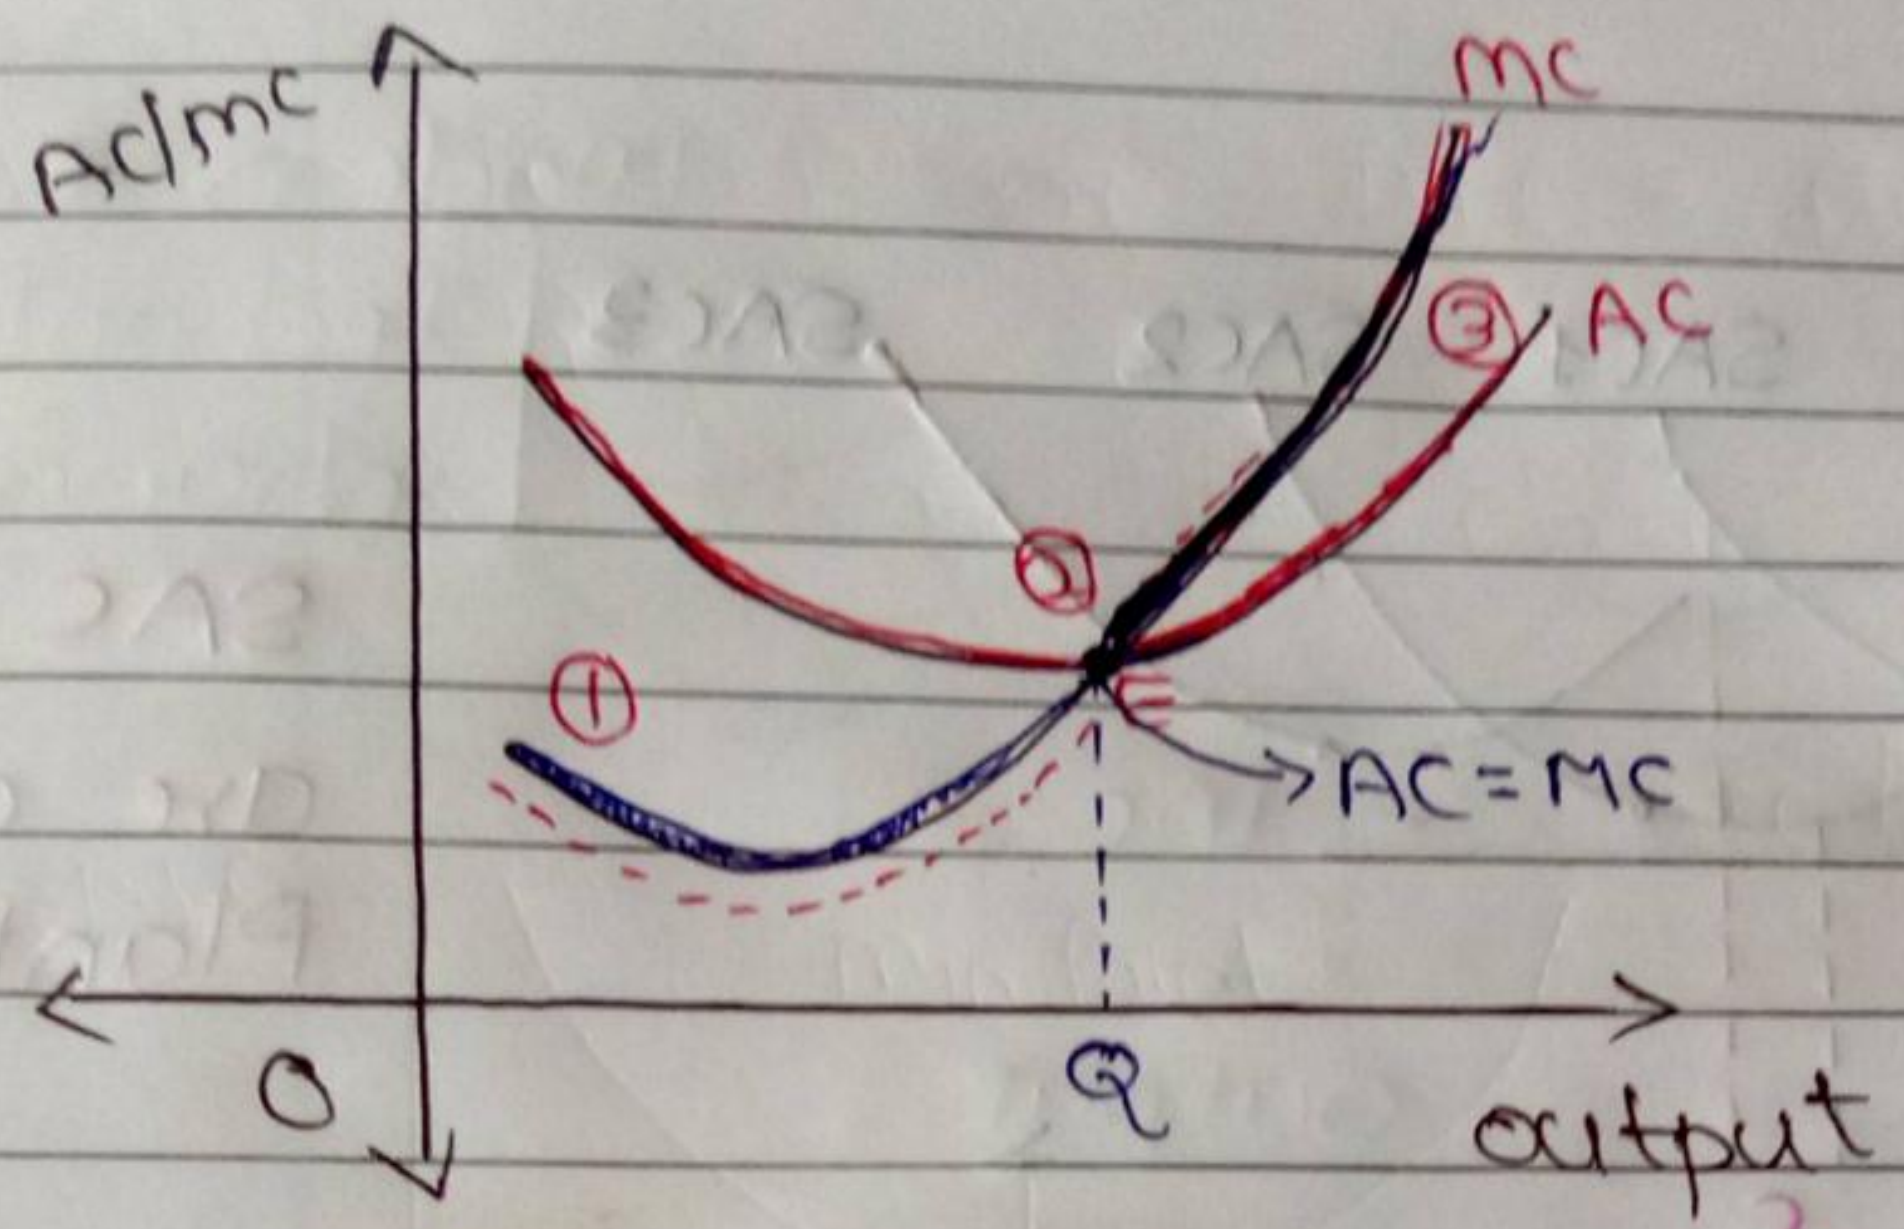 MC
AC/MC
③ AC
②
①
E
AC = MC
O
Q
output